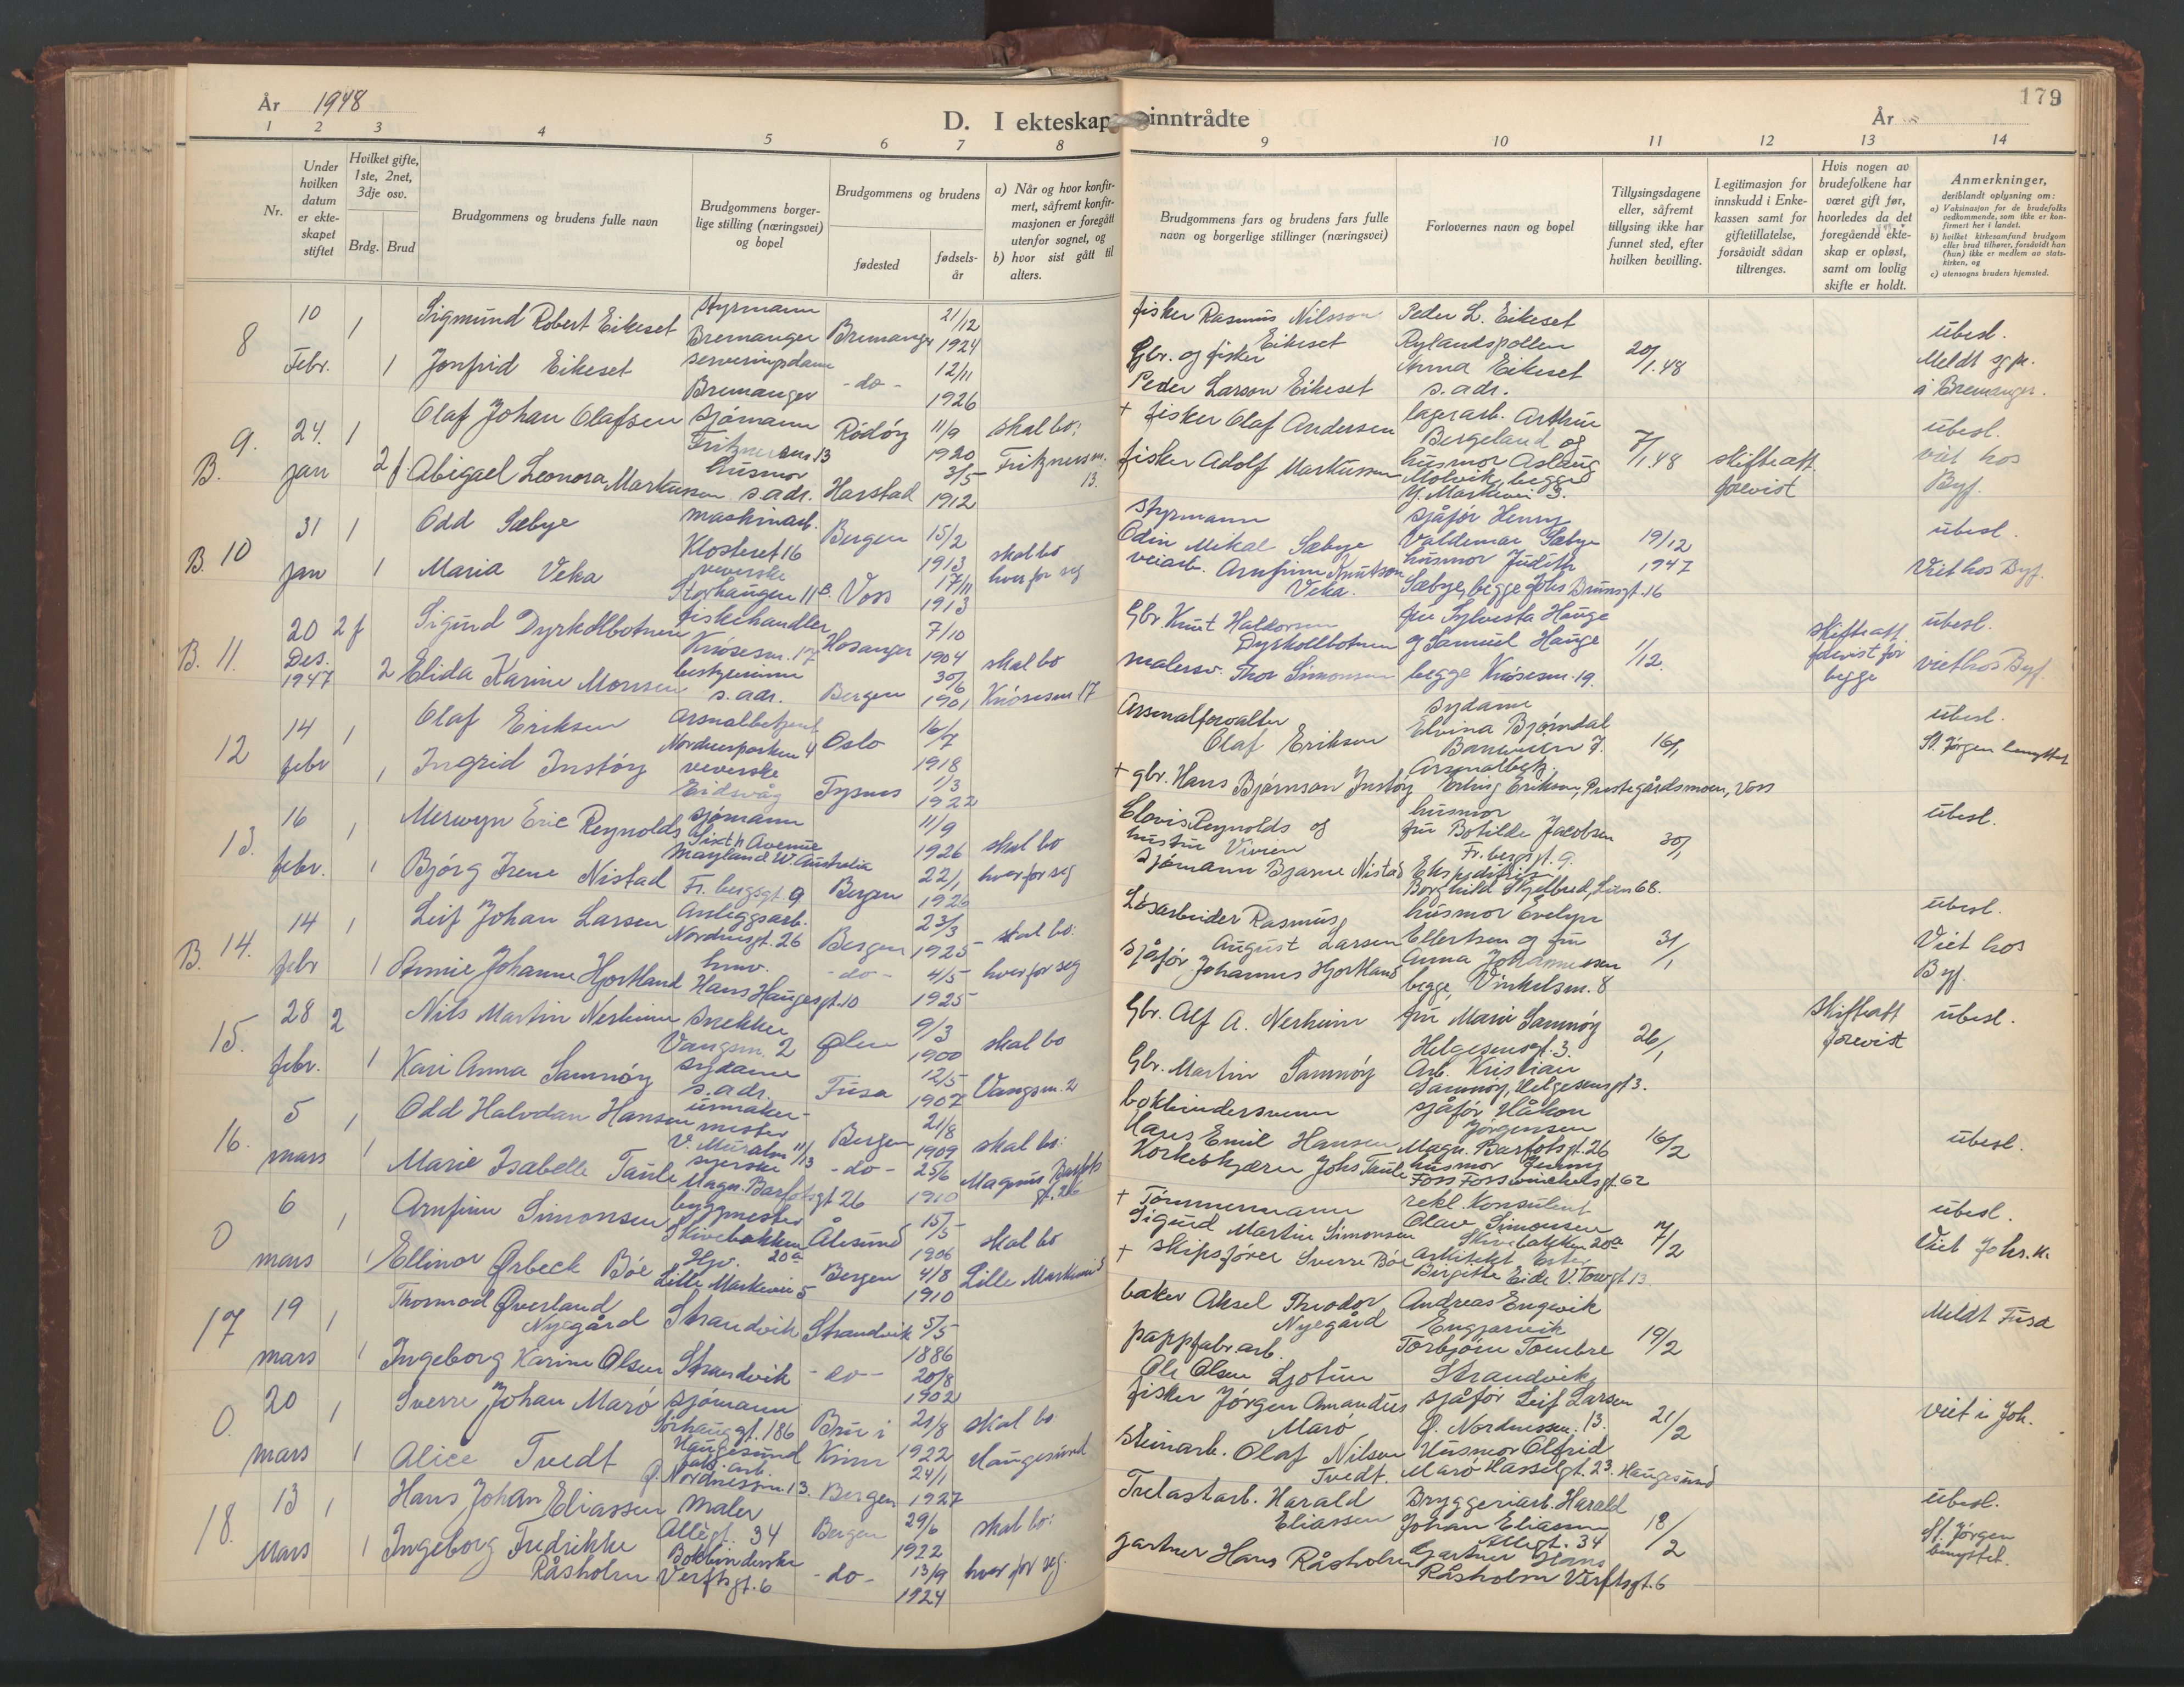 År 1948
D. I ekteskap inntrådte
År
179
1 2 3 4 5 6 7 8 9 10 11 12 13 14
Nr.
Under hvilken datum er ekteskapet stiftet
Hvilket gifte, 1ste, 2net, 3dje osv.
Brdg. Brud
Brudgommens og brudens fulle navn
Brudgommens borgerlige stilling (næringsvei) og bopel
Brudgommens og brudens
fødested
fødselsår
a) Når og hvor konfirmert, såfremt konfirmasjonen er foregått utenfor sognet, og
b) hvor sist gått til alters.
Brudgommens fars og brudens fars fulle navn og borgerlige stillinger (næringsvei)
Forlovernes navn og bopel
Tillysingsdagene eller, såfremt tillysing ikke har funnet sted, efter hvilken bevilling.
Legitimasjon for innskudd i Enkekassen samt for giftetillatelse, forsåvidt sådan tiltrenges.
Hvis nogen av brudefolkene har været gift før, hvorledes da det foregående ekteskap er opløst, samt om lovlig skifte er holdt.
Anmerkninger,
deriblandt oplysning om:
a) Vaksinasjon for de brudefolks vedkommende, som ikke er konfirmert her i landet.
b) hvilket kirkesamfund brudgom eller brud tilhører, forsåvidt han (hun) ikke er medlem av statskirken, og
c) utensogns bruders hjemsted.
8 10 Febr. 1 Sigmund Robert Eikeset styrmann Bremanger Bremanger 21/12 1924 fisker Rasmus Nilsson Eikeset Peder L. Eikeset Rylandspollen 20/1.48 übesl.
1 Jonfrid Eikeset serveringsdame Bremanger -do- 12/11 1926 Gbr. og fisker Peder Larson Eikeset Anna Eikeset s. adr. Meldt sg.pr. i Bremanger.
B. 9. 24. jan 1 Olaf Johan Olafsen sjömann Fritznersm. 13 Rödöy 11/9 1920 skal bo: + fisker Olaf Andersen lagerarb. Arthur Bergeland og 7/1.48 übesl.
2 f Abigael Leonora Markussen husmor s. adr. Harstad 3/5 1912 Fritznersm. 13. fisker Adolf Markussen husmor Aslaug Molvik, begge Y. Markevei 3. skifteatt. forevist viet hos Byf.
B. 10 31 jan 1 Odd Sæbye maskinarb. Klosteret 16 Bergen 15/2 1913 skal bo styrmann Odin Mikal Sæbye sjåför Henry Valdemar Sæbye 19/12 1947 übesl.
1 Maria Veka veverske Storhaugen 11B. Voss 17/11 1913 hver for seg veiarb. Arnfinn Knutson Veka. husmor Judith Sæbye, begge Johs Brunsgt. 16 Viet hos Byf.
B. 11. 20 Des. 1947 2 f Sigurd Dyrkolbotnen fiskehandler Knösesm. 17 Hosanger 7/10 1904 skal bo Gbr. Knut Haldorsen Dyrkollbotnen fru Sylvesta Hauge og Samuel Hauge 1/12. skifteatt. forevist for begge übesl.
2 Elida Karine Monsen bestyrerinne s. adr. Bergen 30/6 1901 Knösesm 17 malersv. Thor Simonsen begge Knösesm. 19. viet hos Byf.
12 14 febr 1 Olaf Eriksen Arsenalbetjent Nordnesparken 4 Oslo 16/7 1918 Arsenalforvalter Olaf Eriksen sydame Elvina Bjørndal 16/1 übesl.
1 Ingrid Instöy veverske Eidsvåg Tysnes 1/3 1922 + gbr. Hans Bjørnson Instöy Arsenalbetj. Erling Eriksen, Prestegårdsmoen, Voss St. Jørgen benyttet
13. 16 febr. 1 Merwyn Eric Reynolds sjömann Sixth Avenue Mayland W. Australia 11/9 1926 skal bo Clovis Reynolds og hustru Vivien husmor fru Botilde Jacobsen Fr. bergsgt. 9. 30/1 übesl.
1 Björg Irene Nistad Fr. bergsgt. 9 Bergen 22/1 1926 hver for seg sjömann Bjarne Nistad Borghild Skjelbred, Lien 68.
B. 14. 14 febr 1 Leif Johan Larsen Anleggsarb. Nordnesgt. 26 Bergen 23/3 1925 skal bo: Lösarbeider Rasmus August Larsen husmor Evelyn Ellertsen og fru 31/1 übesl.
1 Annie Johanne Hjortland Hans Haugesgt. 10 -do- 4/5 1925 hver for seg sjåför Johannes Hjortland Anna Johannessen begge Vinkelsm. 8 Viet hos Byf.
15. 28 febr. 2 Nils Martin Nerheim snekker Vangsm. 2 Ølen 9/3 1900 skal bo Gbr. Alf A. Nerheim fru Marie Samnöy Helgesensgt. 3. 26/1 skifteatt forevist übesl.
1 Kari Anna Samnöy sydame s. adr. Fusa 12/5 1907 Vangsm. 2 Gbr. Martin Samnöy Arb. Kristian Samnöy, Helgesensgt 3.
16. 5 mars 1 Odd Halvdan Hansen urmakermester V. Muralm 11/13 Bergen 21/8 1909 skal bo: bokbindersvenn Hans Emil Hansen sjåför Håkon Jørgensen Magn. Barfotsgt. 26 16/2 übesl.
1 Marie Isabelle Taule syerske Magn. Barfotsgt 26 -do- 25/6 1910 Magnus Barfots gt. 26 Korkeskjærer Johs Taule husmor Jenny Foss Fosswinckelsgt. 62
0 6 mars 1 Arnfinn Simonsen byggmester Skivebakken 20a Ålesund 15/5 1906 skal bo + Tömmermann Sigurd Martin Simonsen rekl. konsulent Olav Simonsen Skivebakken 20a 17/2 übesl.
1 Ellinor Ørbeck Böe Hjv. Lille Markevei 5 Bergen 4/8 1910 Lille Markevei 5 + skipsförer Sverre Böe arkitekt Ester Birgitte Eide V. Torvgt 13. Viet Johs. k.
17 19 mars 1 Thormod Øverland Nyegård Strandvik Strandvik 5/5 1886 baker Aksel Theodor Nyegård Andreas Engevik Engjarvik 19/2 Meldt Fusa
1 Ingeborg Karine Olsen Strandvik -do- 20/8 1902 pappfabr.arb. Ole Olsen Ljotun Torbjörn Tombre Strandvik
0. 20 mars 1 Sverre Johan Marö sjömann Sörhauggt. 186 Haugesund Bru i Kinn 21/8 1922 skal bo fisker Jörgen Amandus Marö sjåför Leif Larsen Ø. Nordnessm. 13. 21/2 viet i Joh.
1 Alice Tvedt fabr. arb. Ø. Nordnessm. 13. Bergen 24/1 1927 Haugesund steinarb. Olaf Nilsen Tvedt. Husmor Olfrid Marö Hasselgt. 23. Haugesund
18. 13 Mars 1 Hans Johan Eliassen maler Allegt. 34 Bergen 29/6 1922 skal bo: Trelastarb. Harald Eliassen Bryggeriarb. Harald Johan Eliassen Allegt. 34 18/2 übesl.
1 Ingeborg Fredrikke Råsholm Bokbinderske Verftsgt. 6 -do- 13/9 1924 hver for seg. gartner Hans Råsholm Gartner Hans Råsholm Verftsgt. 6 St. Jørgen benyttet.